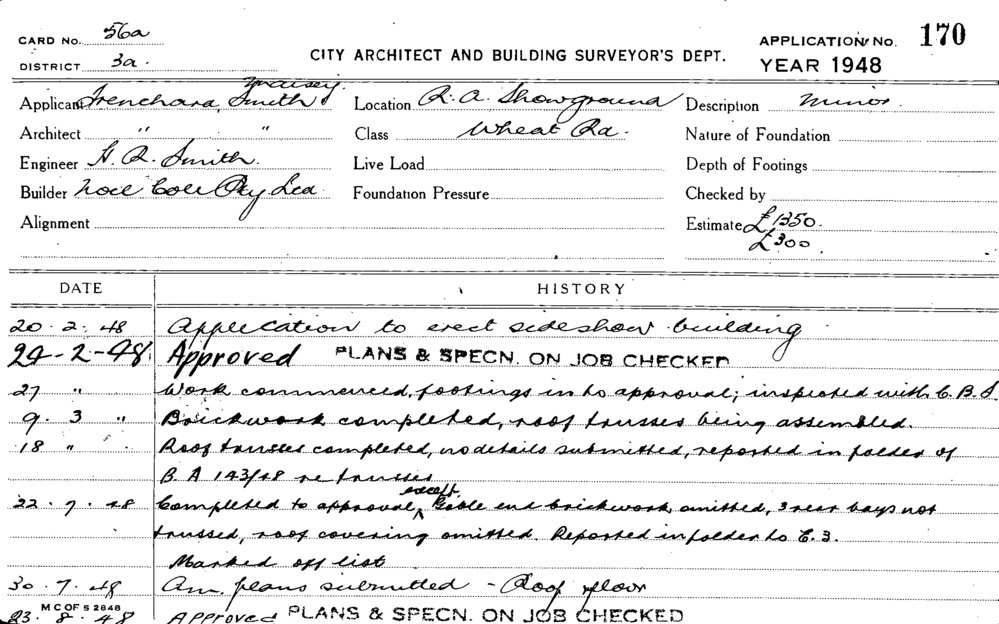 CARD No. 56a
DISTRICT 3a.
CITY ARCHITECT AND BUILDING SURVEYOR'S DEPT.
APPLICATION No. 170
YEAR 1948
Maisey
Applicant Trenchard, Smith & Location R. A. Showground Description Minor.
Architect " " Class Wheat Ra. Nature of Foundation
Engineer H. R. Smith. Live Load Depth of Footings
Builder Noel Cole Pty Ltd. Foundation Pressure Checked by
Alignment Estimate £1350.
£300
DATE HISTORY
20 . 2 . 48 Application to erect sideshow building
24-2-48 Approved PLANS & SPECN. ON JOB CHECKED
27 " Work commenced, footings in to approval; inspected with C.B.I.
9 . 3 " Brickwork completed, roof trusses being assembled.
18 " Roof trusses completed, no details submitted, reported in folder of
B.A 143/48 re trusses
except
22 . 7 . 48 Completed to approval, Gable end brickwork omitted, 3 rear bays not
trussed, roof covering omitted. Reported in folder to E.3.
Marked off list
30 . 7 . 48 Am. plans submitted - Roof floor
M C OF S 2848
23 . 8 . 48 Approved PLANS & SPECN. ON JOB CHECKED